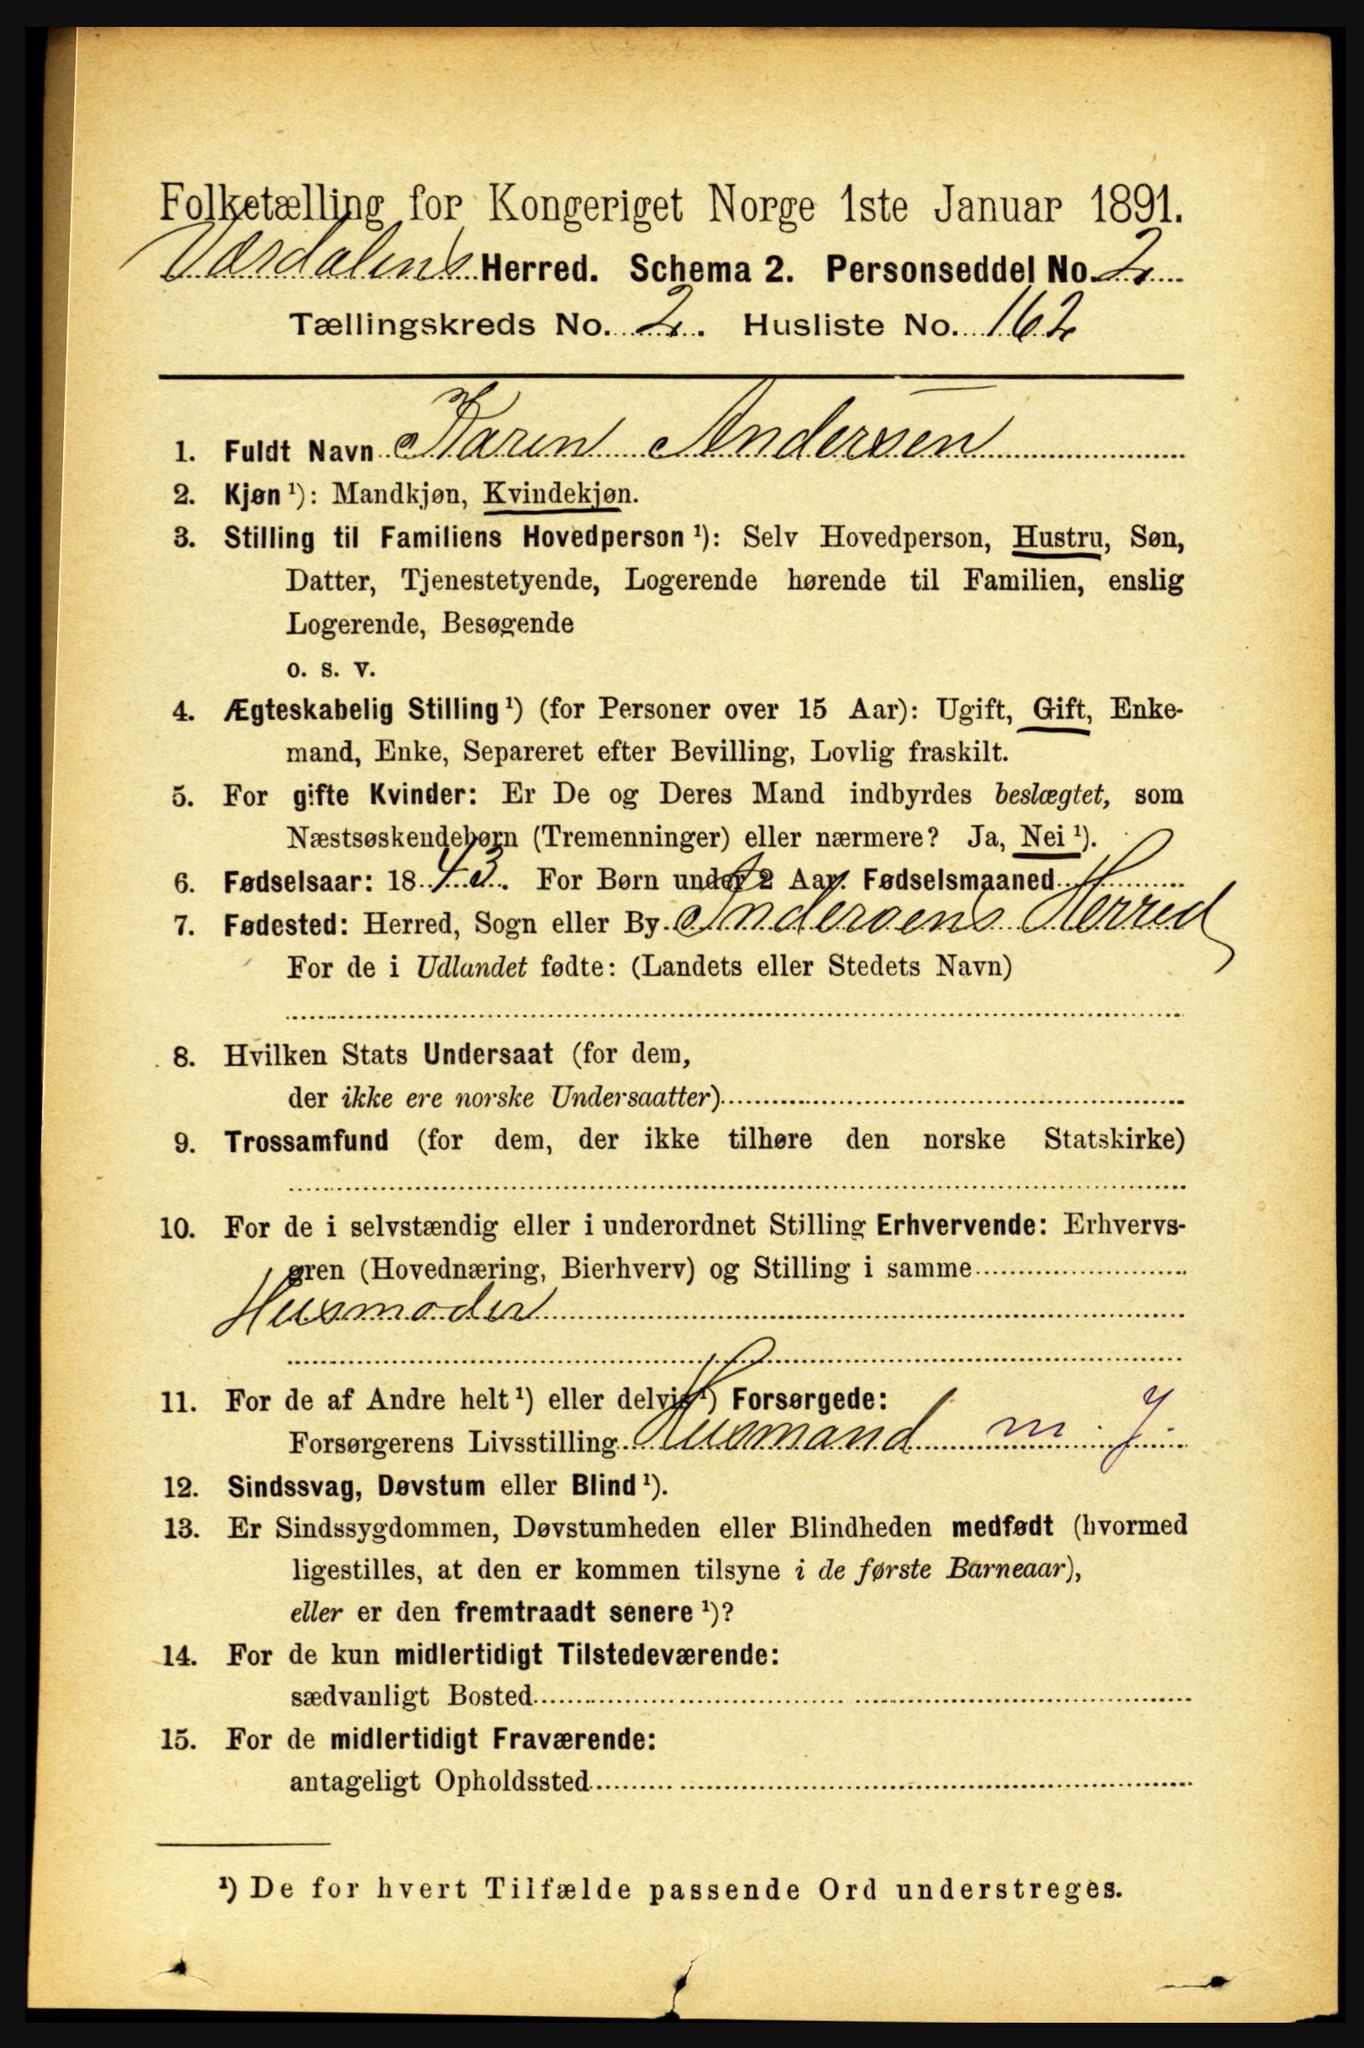 Folketælling for Kongeriget Norge 1ste Januar 1891.
Værdalens Herred. Schema 2. Personseddel No. 2
Tællingskreds No. 2. Husliste No. 162
1. Fuldt Navn Karen Andersen
2. Kjøn ¹): Mandkjøn, Kvindekjøn.
3. Stilling til Familiens Hovedperson ¹): Selv Hovedperson, Hustru, Søn,
Datter, Tjenestetyende, Logerende hørende til Familien, enslig
Logerende, Besøgende
o. s. v.
4. Ægteskabelig Stilling ¹) (for Personer over 15 Aar): Ugift, Gift, Enke-
mand, Enke, Separeret efter Bevilling, Lovlig fraskilt.
5. For gifte Kvinder: Er De og Deres Mand indbyrdes beslægtet, som
Næstsøskendebørn (Tremenninger) eller nærmere? Ja, Nei ¹).
6. Fødselsaar: 1843. For Børn under 2 Aar: Fødselsmaaned
7. Fødested: Herred, Sogn eller By Inderøens Herred
For de i Udlandet fødte: (Landets eller Stedets Navn)
8. Hvilken Stats Undersaat (for dem,
der ikke ere norske Undersaatter)
9. Trossamfund (for dem, der ikke tilhøre den norske Statskirke)
10. For de i selvstændig eller i underordnet Stilling Erhvervende: Erhvervs-
gren (Hovednæring, Bierhverv) og Stilling i samme
Husmoder
11. For de af Andre helt ¹) eller delvis ¹) Forsørgede:
Forsørgerens Livsstilling Husmand m. J.
12. Sindssvag, Døvstum eller Blind ¹).
13. Er Sindssygdommen, Døvstumheden eller Blindheden medfødt (hvormed
ligestilles, at den er kommen tilsyne i de første Barneaar),
eller er den fremtraadt senere ¹)?
14. For de kun midlertidigt Tilstedeværende:
sædvanligt Bosted
15. For de midlertidigt Fraværende:
antageligt Opholdssted
¹) De for hvert Tilfælde passende Ord understreges.